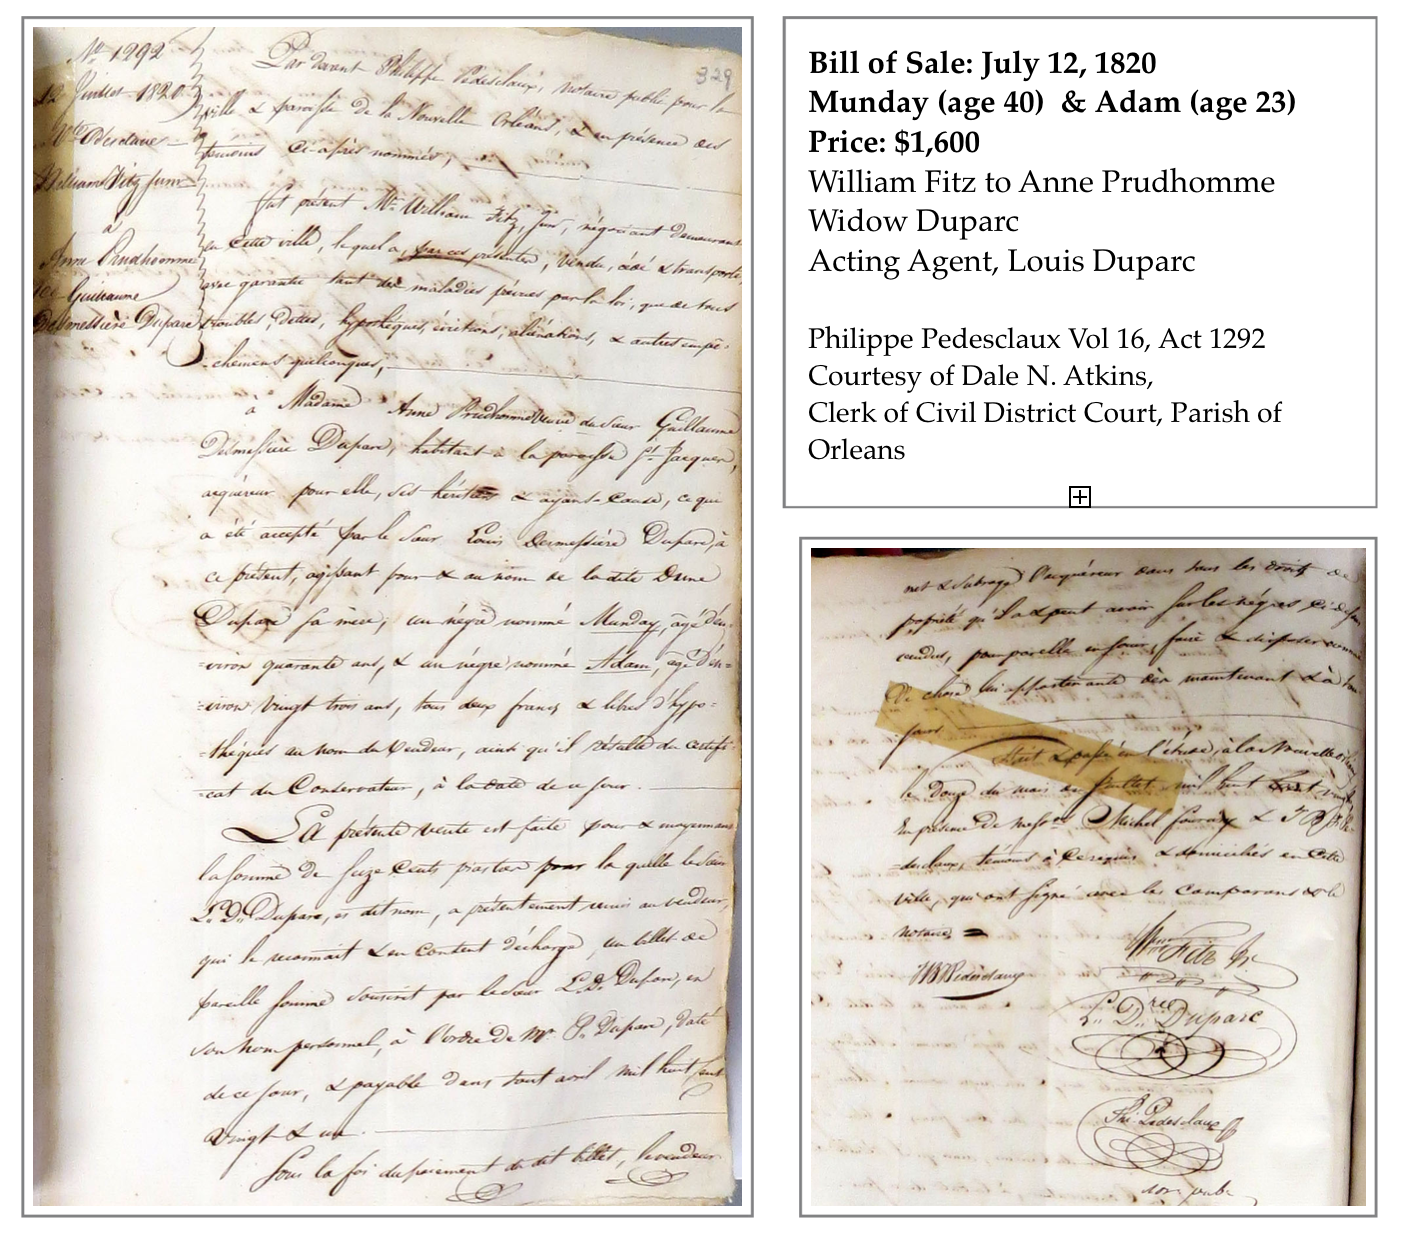 329
No. 1292
12 Juillet 1820
Vte. d'esclaves
William Fitz Junr
à
Anne Prudhomme
Ve. Guillaume
Delmessière Duparc
Par devant Philippe Pedesclaux, notaire public pour la
ville & paroisse de la Nouvelle Orléans, & en présence des
témoins ci-après nommés,
fut présent Mr. William Fitz, Junr, négociant demeurant
en cette ville, lequel a, par ces présentes, vendu, cédé & transporté,
avec garantie tant des maladies prévues par la loi, que de tous
troubles, dettes, hypothèques, évictions, aliénations, & autres empê-
-chemens quelconques,
a Madame Anne Prudhomme veuve du Sieur Guillaume
Delmessière Duparc, habitant à la paroisse St. Jacques,
acquéreur pour elle, ses héritiers & ayans-cause, ce qui
a été accepté par le Sieur Louis Delmessière Duparc, à
ce présent, agissant pour & au nom de la dite Dame
Duparc sa mère, un nègre nommé Munday, agé d'en-
-viron quarante ans, & un nègre nommé Adam, agé d'en-
-viron vingt trois ans, tous deux francs & libres d'hypo-
-thèques au nom du vendeur, ainsi qu'il résulte du certifi-
-cat du Conservateur, à la date de ce jour.
La présente vente est faite pour & moyennant
la somme de seize cents piastres pour la quelle le Sieur
L. D. Duparc, es dit nom, a présentement remis au vendeur,
qui le reconnait & en consent décharge, un billet de
pareille somme souscrit par le Sieur L. D. Duparc, en
son nom personnel, à l'ordre de Mr. P. Duparc, daté
de ce jour, & payable dans tout avril mil huit cent
vingt & un.
Sous la foi du paiement du dit billet, le vendeur
Bill of Sale: July 12, 1820
Munday (age 40) & Adam (age 23)
Price: $1,600
William Fitz to Anne Prudhomme
Widow Duparc
Acting Agent, Louis Duparc
Philippe Pedesclaux Vol 16, Act 1292
Courtesy of Dale N. Atkins,
Clerk of Civil District Court, Parish of
Orleans
met & subroge l'acquéreur dans tous les droits de
propriété qu'il a & peut avoir sur les nègres ci-dessus
vendus, pour par elle en jouir, faire & disposer comme
de chose lui appartenante dès maintenant & à tou-
jours.
Fait & passé en l'étude, à la Nouvelle Orléans
le douze du mois de Juillet mil huit cent vingt
En présence de Messrs. Michel Fourcisy &
-desclaux, témoins à ce requis & domiciliés en cette
ville, qui ont signé avec les comparans & le
notaire
Wm Fitz Jr.
L. D. Duparc
Phi. Pedesclaux
not. pub.